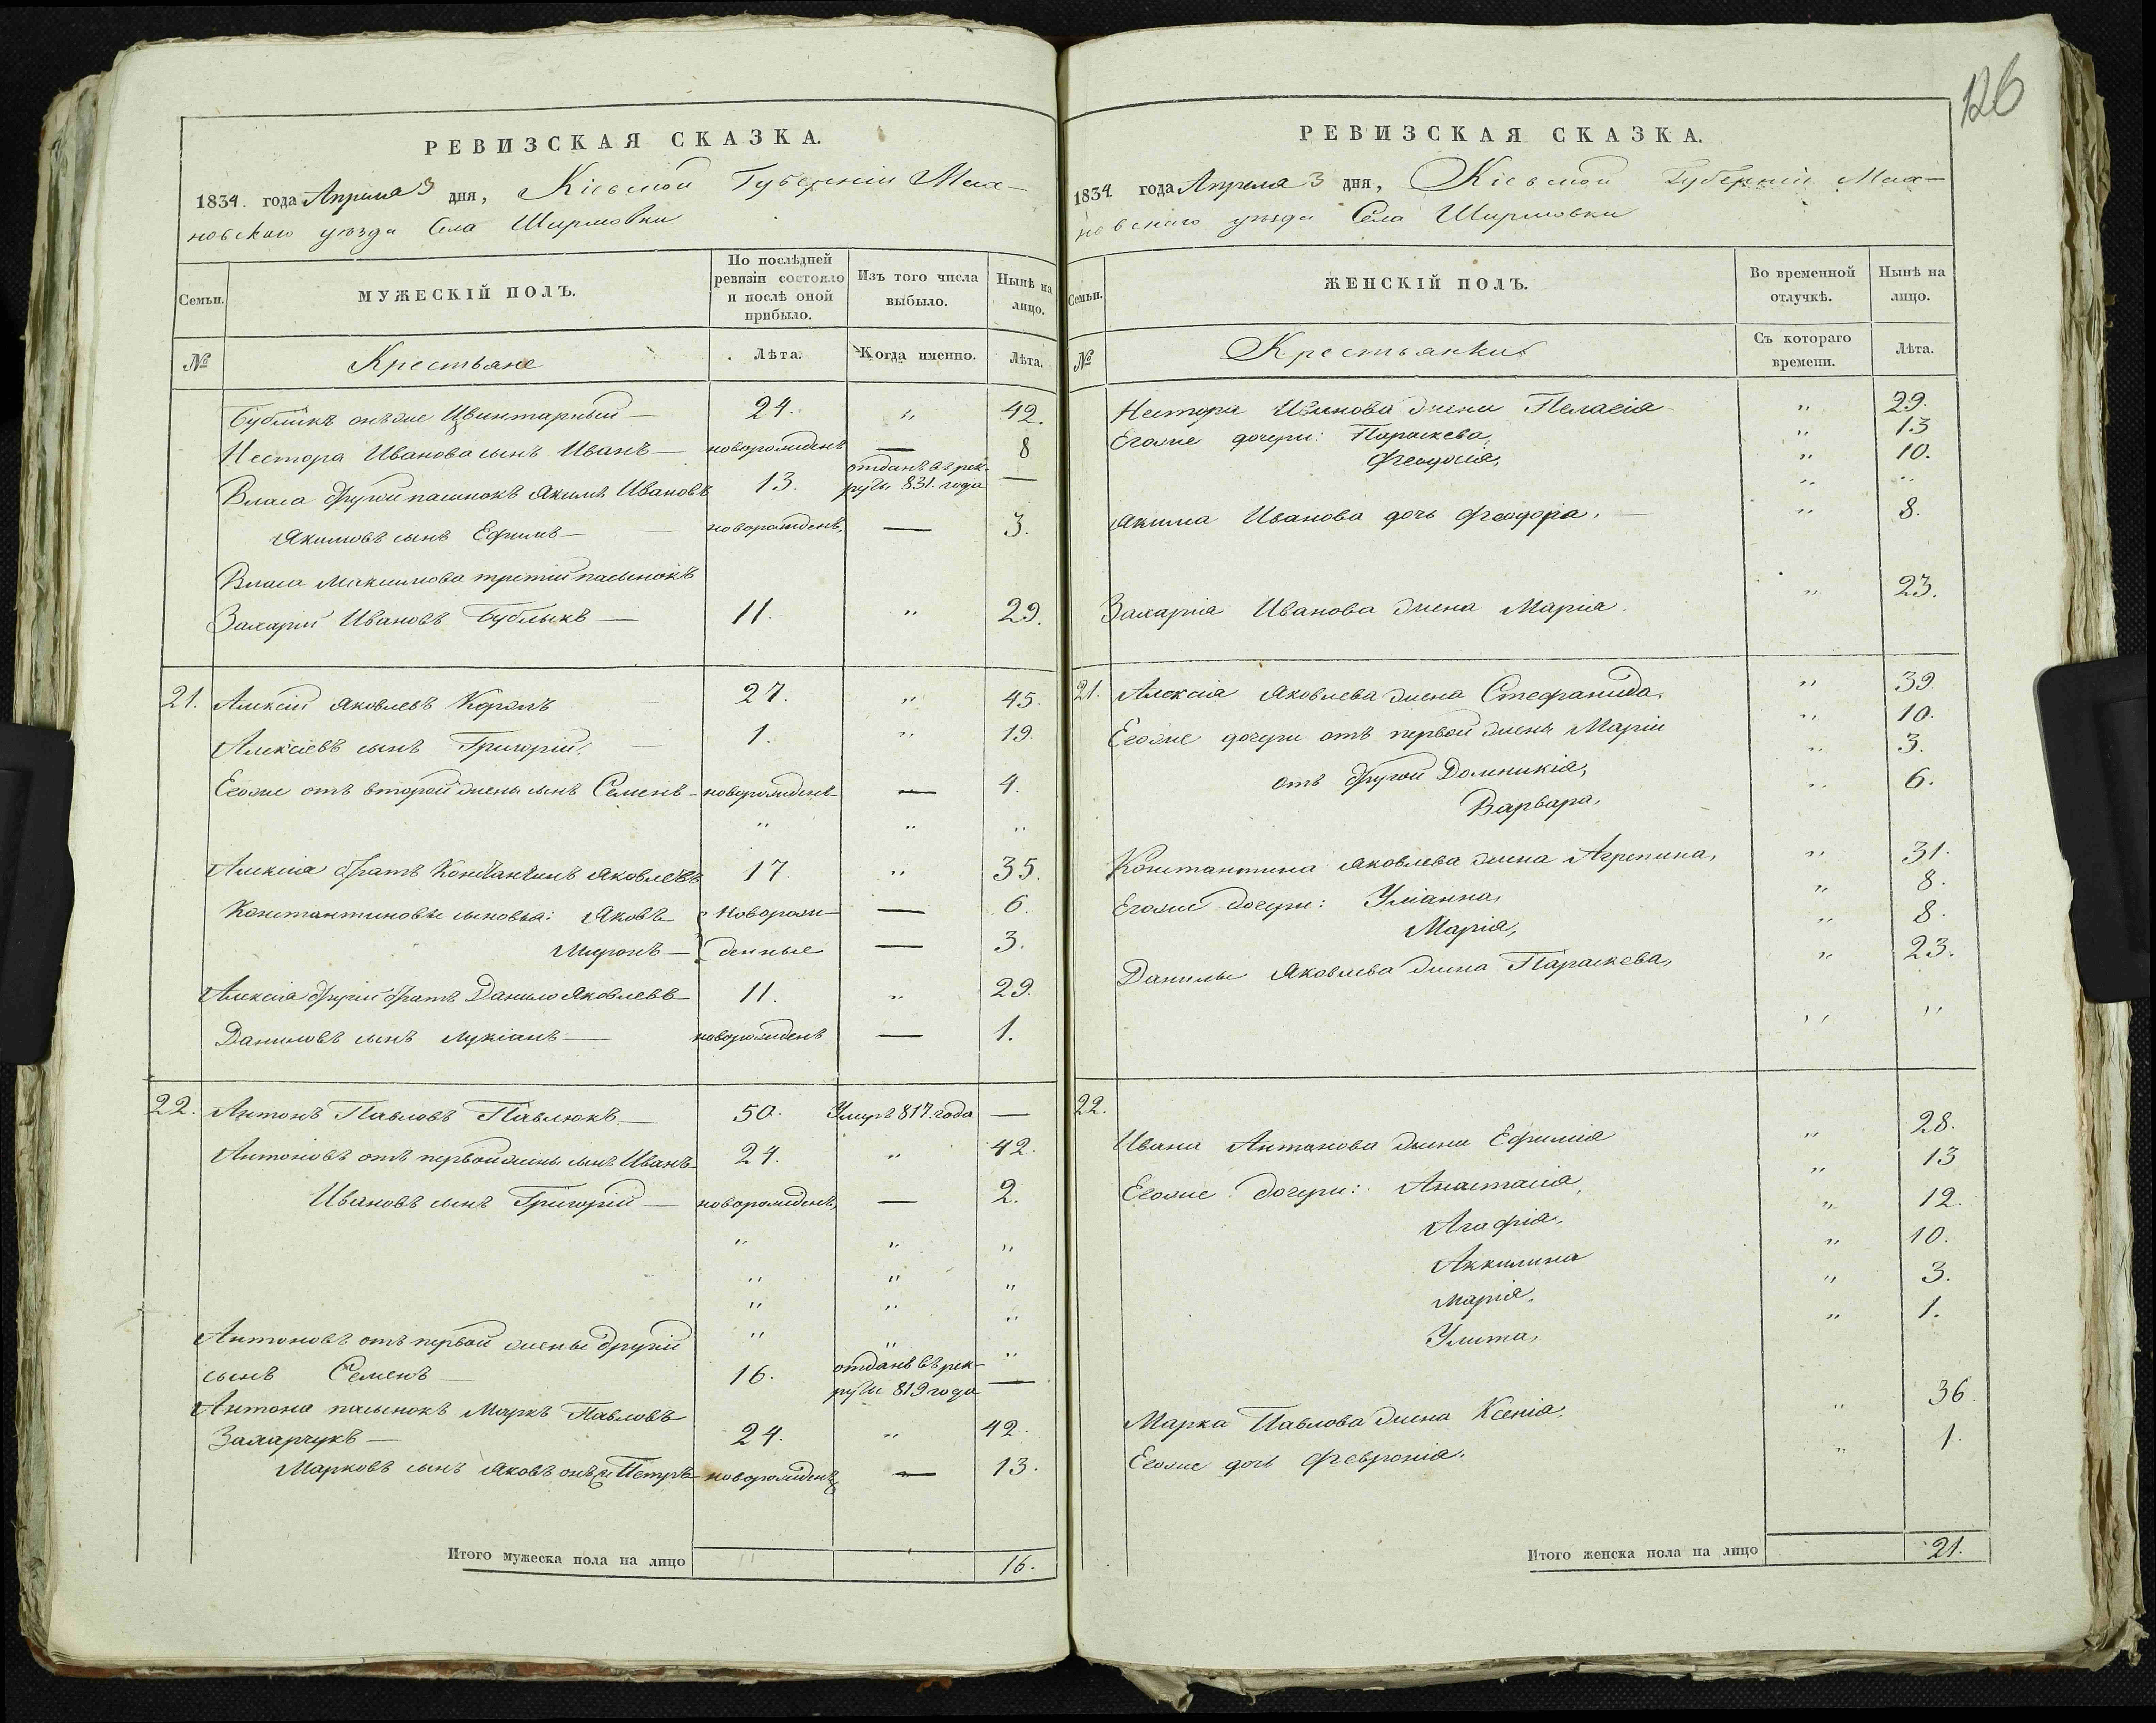 РЕВИЗСКАЯ СКАЗКА.
1834. года Апреля 3 дня, Кіевской Губерніи Мах-
новскаго уезда Села Ширмовки
Семьи.
МУЖЕСКІЙ ПОЛЪ.
По послѣдней ревизіи состояло и послѣ оной прибыло.
Изъ того числа выбыло.
Нынѣ на лицо.
№
Крестьяне
Лѣта.
Когда именно.
Лѣта.
Бубликъ онъже Цвинтарный — 24. " 42.
Нестора Иванова сынъ Иванъ — новорожденъ — 8
Власа другой пасынокъ Якимъ Ивановъ 13. отданъ въ рек-
руты 831. года —
Якимовъ сынъ Ефимъ — новорожденъ, — 3.
Власа Максимова третій пасынокъ
Захарій Ивановъ Бублыкъ — 11. " 29.
21. Алексій Яковлевъ Король 27. " 45.
Алексіевъ сынъ Григорій, — 1. " 19.
Егоже отъ второй жены сынъ Семенъ — новорожденъ — — 4.
" " "
Алексіа братъ Константинъ Яковлевъ 17. " 35.
Константиновы сыновья: Яковъ } новорож- — 6.
Миронъ — } денные — 3.
Алексіа другій братъ Данило Яковлевъ — 11. " 29.
Даниловъ сынъ Лукіанъ — новорожденъ — 1.
22. Антонъ Павловъ Павлюкъ — 50. Умеръ 817. года —
Антоновъ отъ первой жены сынъ Иванъ — 24. " 42.
Ивановъ сынъ Григорій — новорожденъ, — 2.
" " "
" " "
" " "
Антоновъ отъ первой жены другій " " "
сынъ Семенъ — 16. отданъ въ рек-
руты 819 года —
Антона пасынокъ Маркъ Павловъ
Захарчукъ — 24. " 42.
Марковъ сынъ Яковъ онъже Петръ — новорожденъ — 13.
Итого мужеска пола на лицо 16.
126
РЕВИЗСКАЯ СКАЗКА.
1834 года Апреля 3 дня, Кіевской Губерніи Мах-
новскаго уезда Села Ширмовки
Семьи.
ЖЕНСКІЙ ПОЛЪ.
Во временной отлучкѣ.
Нынѣ на лицо.
№
Крестьянки
Съ котораго времени.
Лѣта.
Нестора Иванова жена Пелагіа " 29.
Егоже дочери: Параскева, " 13
Феодосіа, " 10.
" "
Якима Иванова дочь Феодора. — " 8.
Захаріа Иванова жена Маріа. " 23.
21. Алексіа Яковлева жена Стефанида, " 39.
Егоже дочери отъ первой жены Маріи " 10.
отъ другой Домникіа, " 3.
Варвара, " 6.
Константина Яковлева жена Агрепина, " 31.
Егоже дочери: Уліанна, " 8.
Маріа, " 8.
Данилы Яковлева жена Параскева, " 23.
" "
22.
Ивана Антонова жена Ефиміа " 28.
Егоже дочери: Анастасіа, " 13
Агафіа, " 12.
Аккилина " 10.
Маріа, " 3.
Улита, " 1.
Марка Павлова жена Ксеніа, " 36.
Егоже дочь Февроніа. " 1.
Итого женска пола на лицо 21.